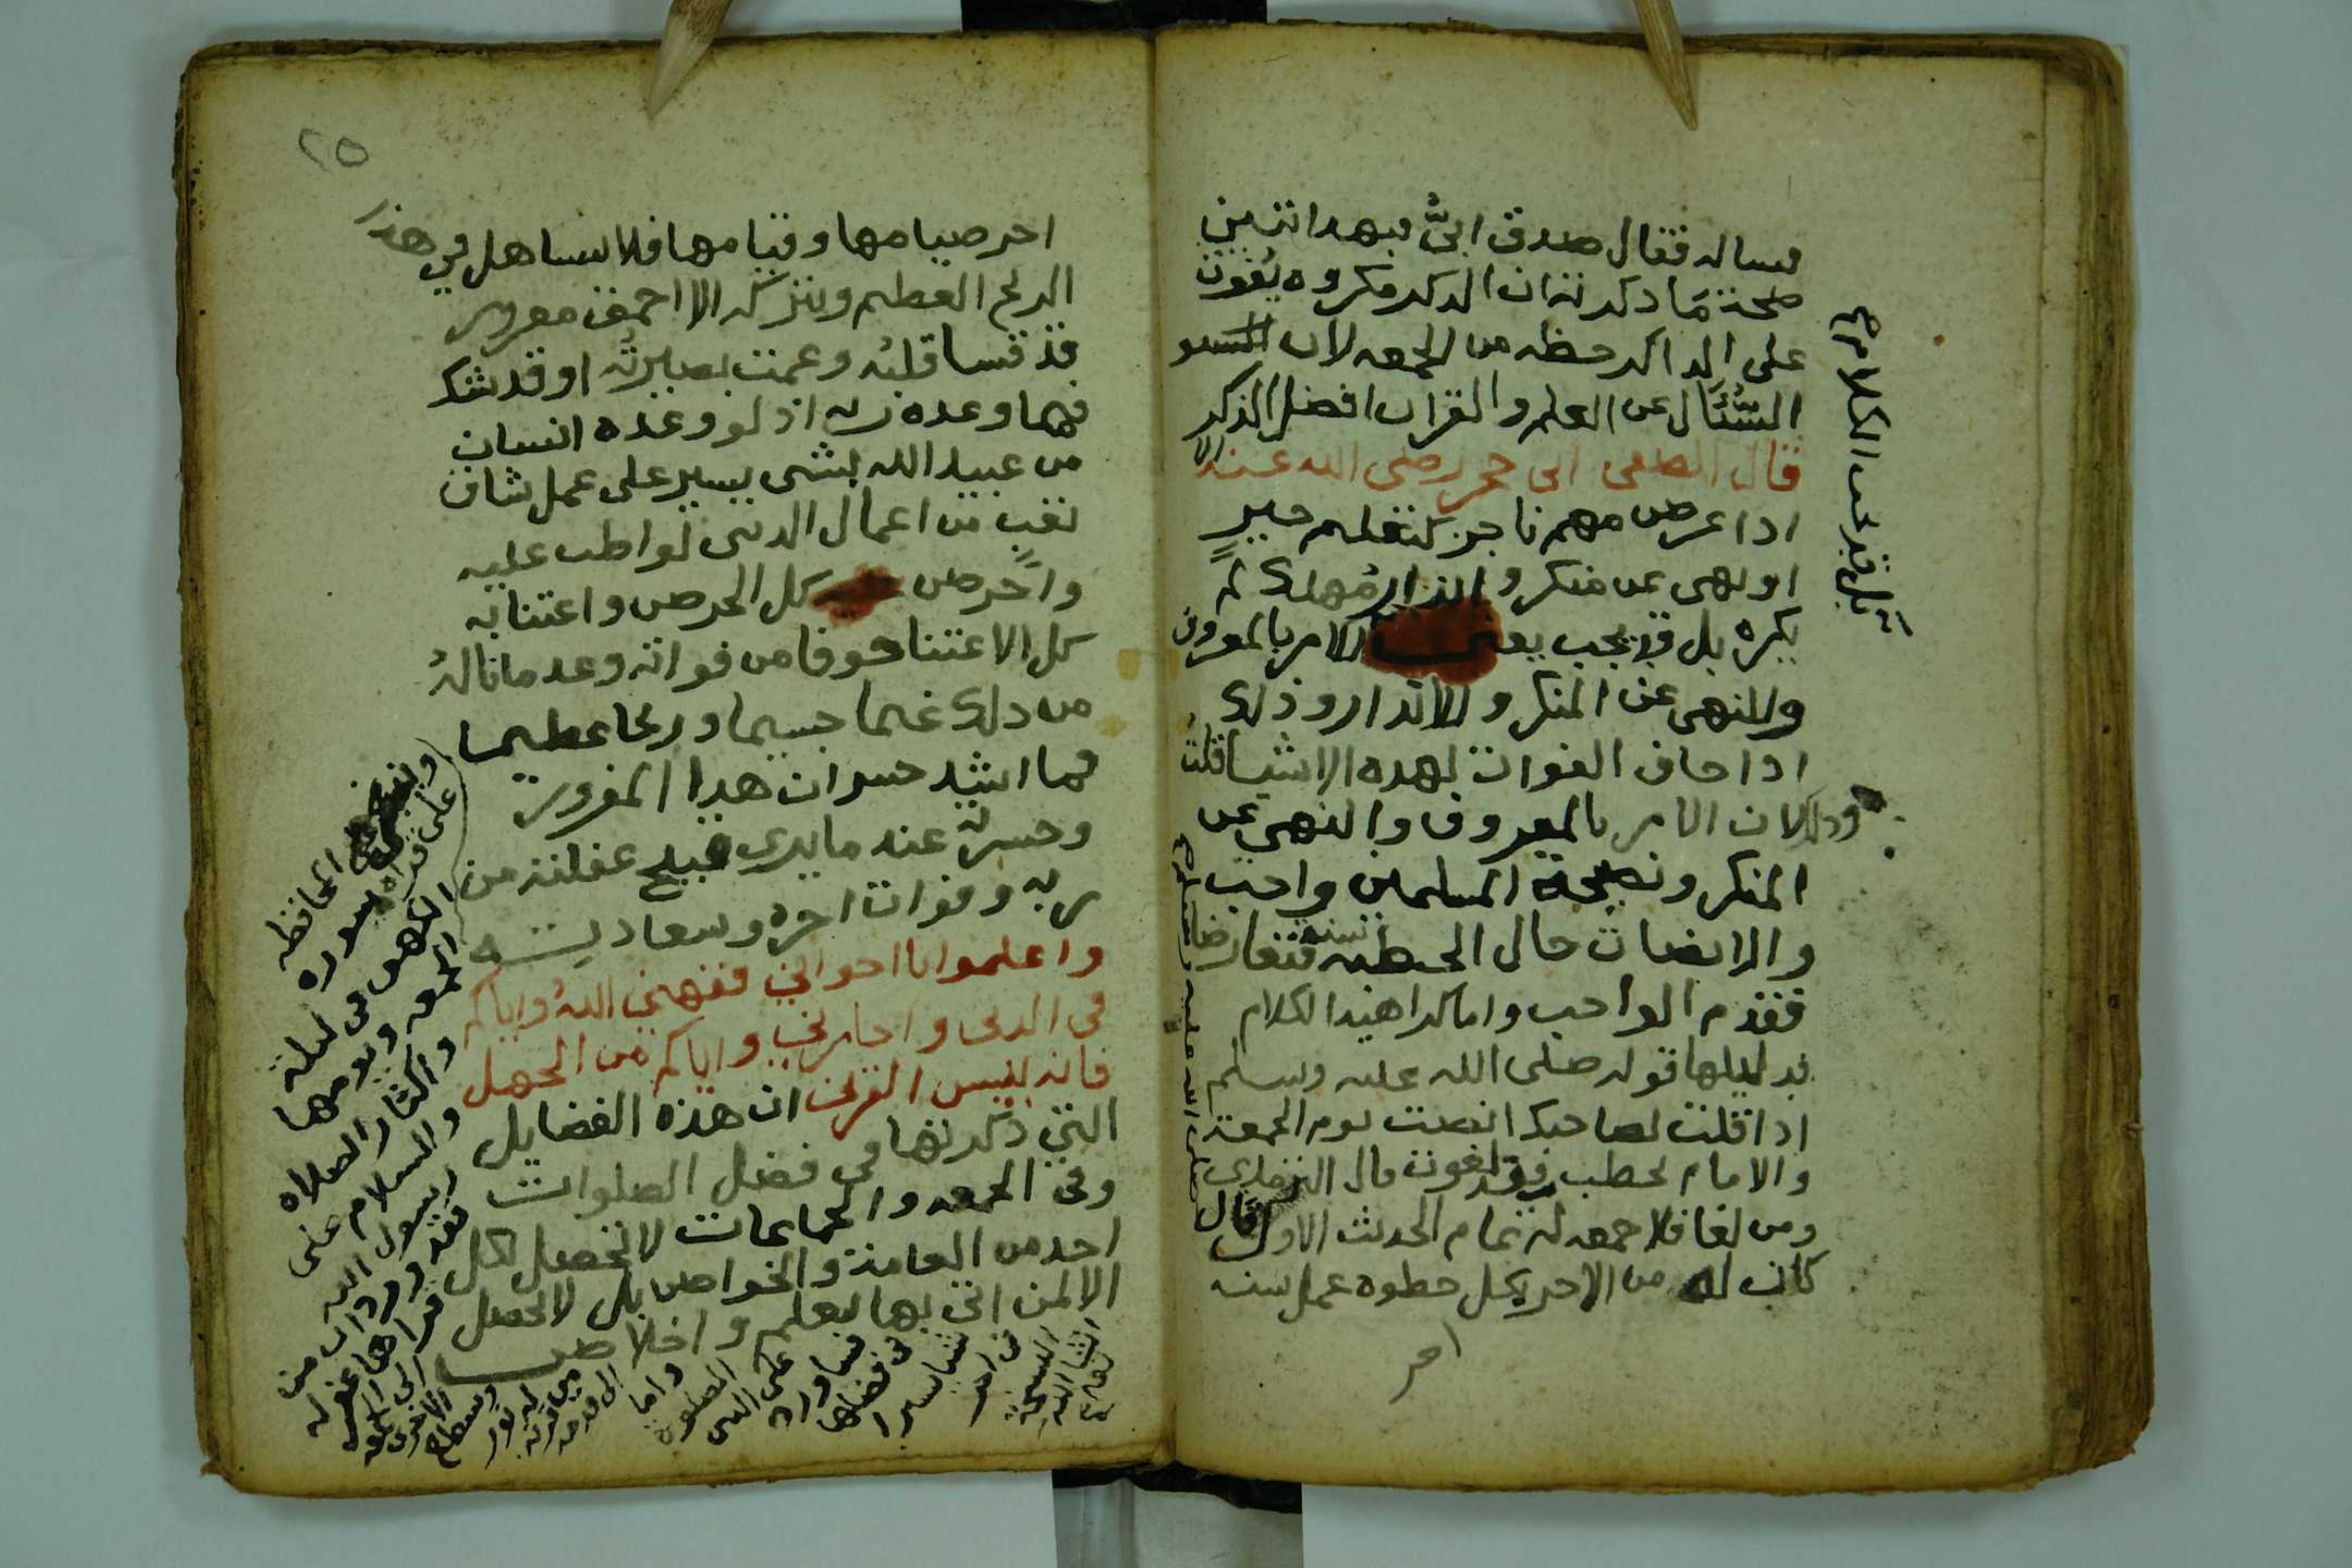 فساله فقال صدق ابيٌّ فبهذا تتبين
صحة ما ذكرته ان الذكر مكروه يفوت
على الذاكر حظه من الجمعه لان
السُّئَال عن العلم والقران افضل الذكر
قال رضى الله عنه
اذا عرض مهم ناجز كتعليم خيرٍ
او نهى عن منكر و انذار مُهلك لم
يكره بل قد يجب يعني الامر بالمعروف
والنهى عن المنكر والانذار وذلك
اذا خاف الفوات لهذه الاشيا قلت
وذلك لان الامر بالمعروف والنهى عن
المنكر ونصيحة المسلمين واجب
والانصات حال الخطبه سنة فتعارضا
فقدم الواجب واما كراهية الكلام
فدليلها قوله صلى الله عليه وسلم
اذا قلت لصاحبك انصت يوم الجمعة
والامام يخطب فقد لغوت قال الترمذي
ومن لغا فلا جمعه له تمام الحديث الاول قال
كان له من الاجر بكل خطوه عمل سنه
اجر
بل قد يجب الكلام
صلى الله عليه وسلم
٢٥
اجر صيامها وقيامها فلا يساهل في هذا
الربح العظيم ويتركه الا احمق مغرور
قد قسا قلبُه وعميت بصيرتُه او قد شك
فيما وعده ربه اذ لو وعده انسان
من عبيد الله بشى يسير على عمل شاق
تعب من اعمال الدنيى لواظب عليه
واحرص كل الحرص واعتنا به
كل الاعتنا خوفا من فواته وعد ما ناله
من ذلك غنما جسيما وربحا عظيما
فما اشد خسران هذا المغرور
وحسرته عند ما يدرى قبيح غفلته من
ربه وفوات اجره وسعاديته
واعلموا يا اخواني ففهمني اللهُ واياكم
في الدين واجارني واياكم من الجهل
فانه لبيس القرين ان هذه الفضايل
التي ذكرتها في فضل الصلوات
وفي الجمعه والجماعات لا تحصل لكل
احد من العامة والخواص بل لا تحصل
الا لمن اتى بها بعلم واخلاص
وينبغي المحافظه
على قراه سوره
الكهف من ليلة
الجمعه ويومها
واكثار الصلاه
والسلام على
رسول الله
فقد ورد ان من
قراها غفر له
الى الجمعه
الاخرى
وسطع
له نور
من قدمه
الى
واما
الصلوة
على النبي
فساورد
من فضلها
شيا يسيرا
من اخر
النسخة
انشا الله
تعالى